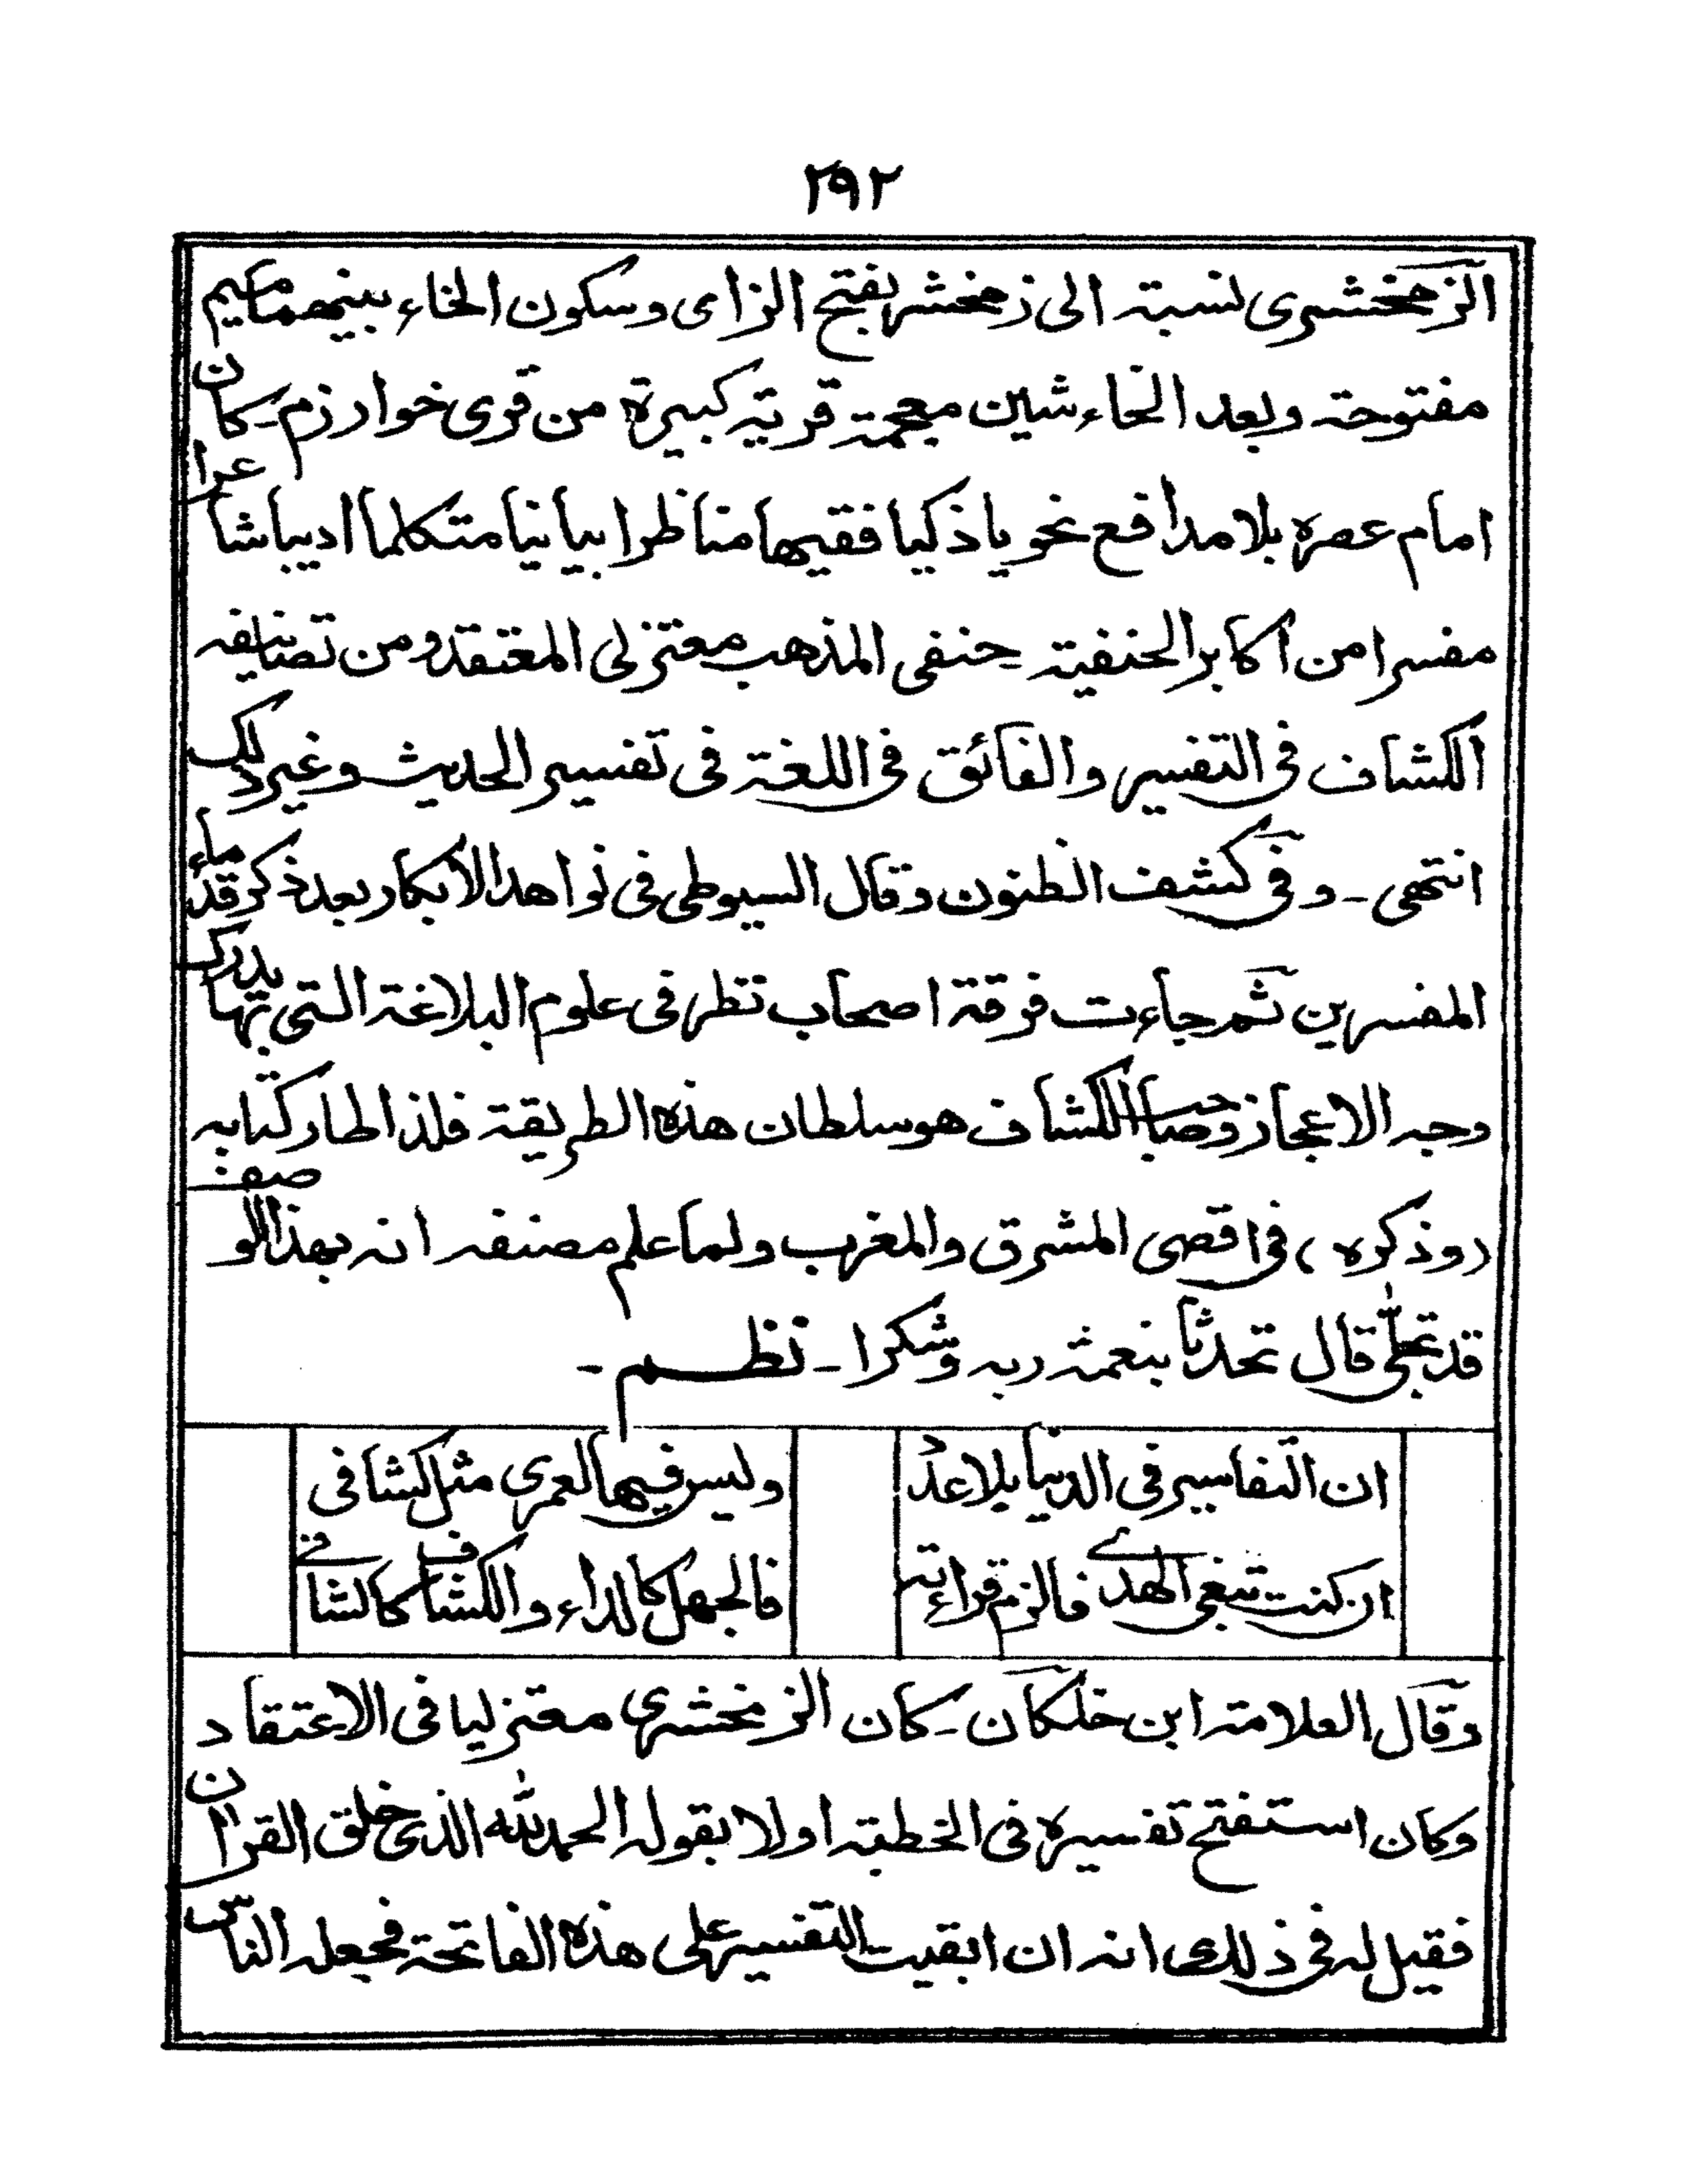 ٢٩٢
الزمخشری نسبتہ الی زمخشر بفتح الزای وسکون الخاء بینھما میم
مفتوحتہ وبعد الخاء شین معجمتہ قریتہ کبیرۃ من قری خوارزم ۔ کان
امام عصرہ بلا مدافع نحویا ذکیا فقیھا مناظرا بیانیا متکلما ادیبا شاعرا
مفسرا من اکابر الحنفیتہ حنفی المذھب معتزلی المعتقد ومن تصانیفہ
الکشاف فی التفسیر والفائق فی اللغۃ فی تفسیر الحدیث وغیر ذلک
انتھی ۔ و فی کشف الظنون وقال السیوطی فی نواھد الابکار بعد ذکر قدماء
المفسرین ثم جاءت فرقۃ اصحاب نظر فی علوم البلاغۃ التی یدرک بھا
وجہ الاعجاز وصاحب الکشاف ھو سلطان ھذہ الطریقۃ فلذا طار کتابہ
(وذکرہ) فی اقصی المشرق والمغرب ولما علم مصنفہ انہ بھذا الوصف
قد تحلّٰی قال تحدثا بنعمۃ ربہ وشکرا ۔ نظم ۔
ان التفاسیر فی الدنیا بلا عدد ولیس فیھا لعمری مثل کشافی
ان کنت تبغی الھدے فالزم قراءتہ فالجھل کالداء والکشاف کالشافے
وقال العلامتہ ابن خلکان ۔ کان الزمخشری معتزلیا فی الاعتقاد
وکان استفتح تفسیرہ فی الخطبتہ اولا بقولہ الحمد للّٰہ الذی خلق القراٰن
فقیل لہ فی ذلک انہ ان ابقیت التفسیر علی ھذہ الفاتحۃ فجعلہ الناس